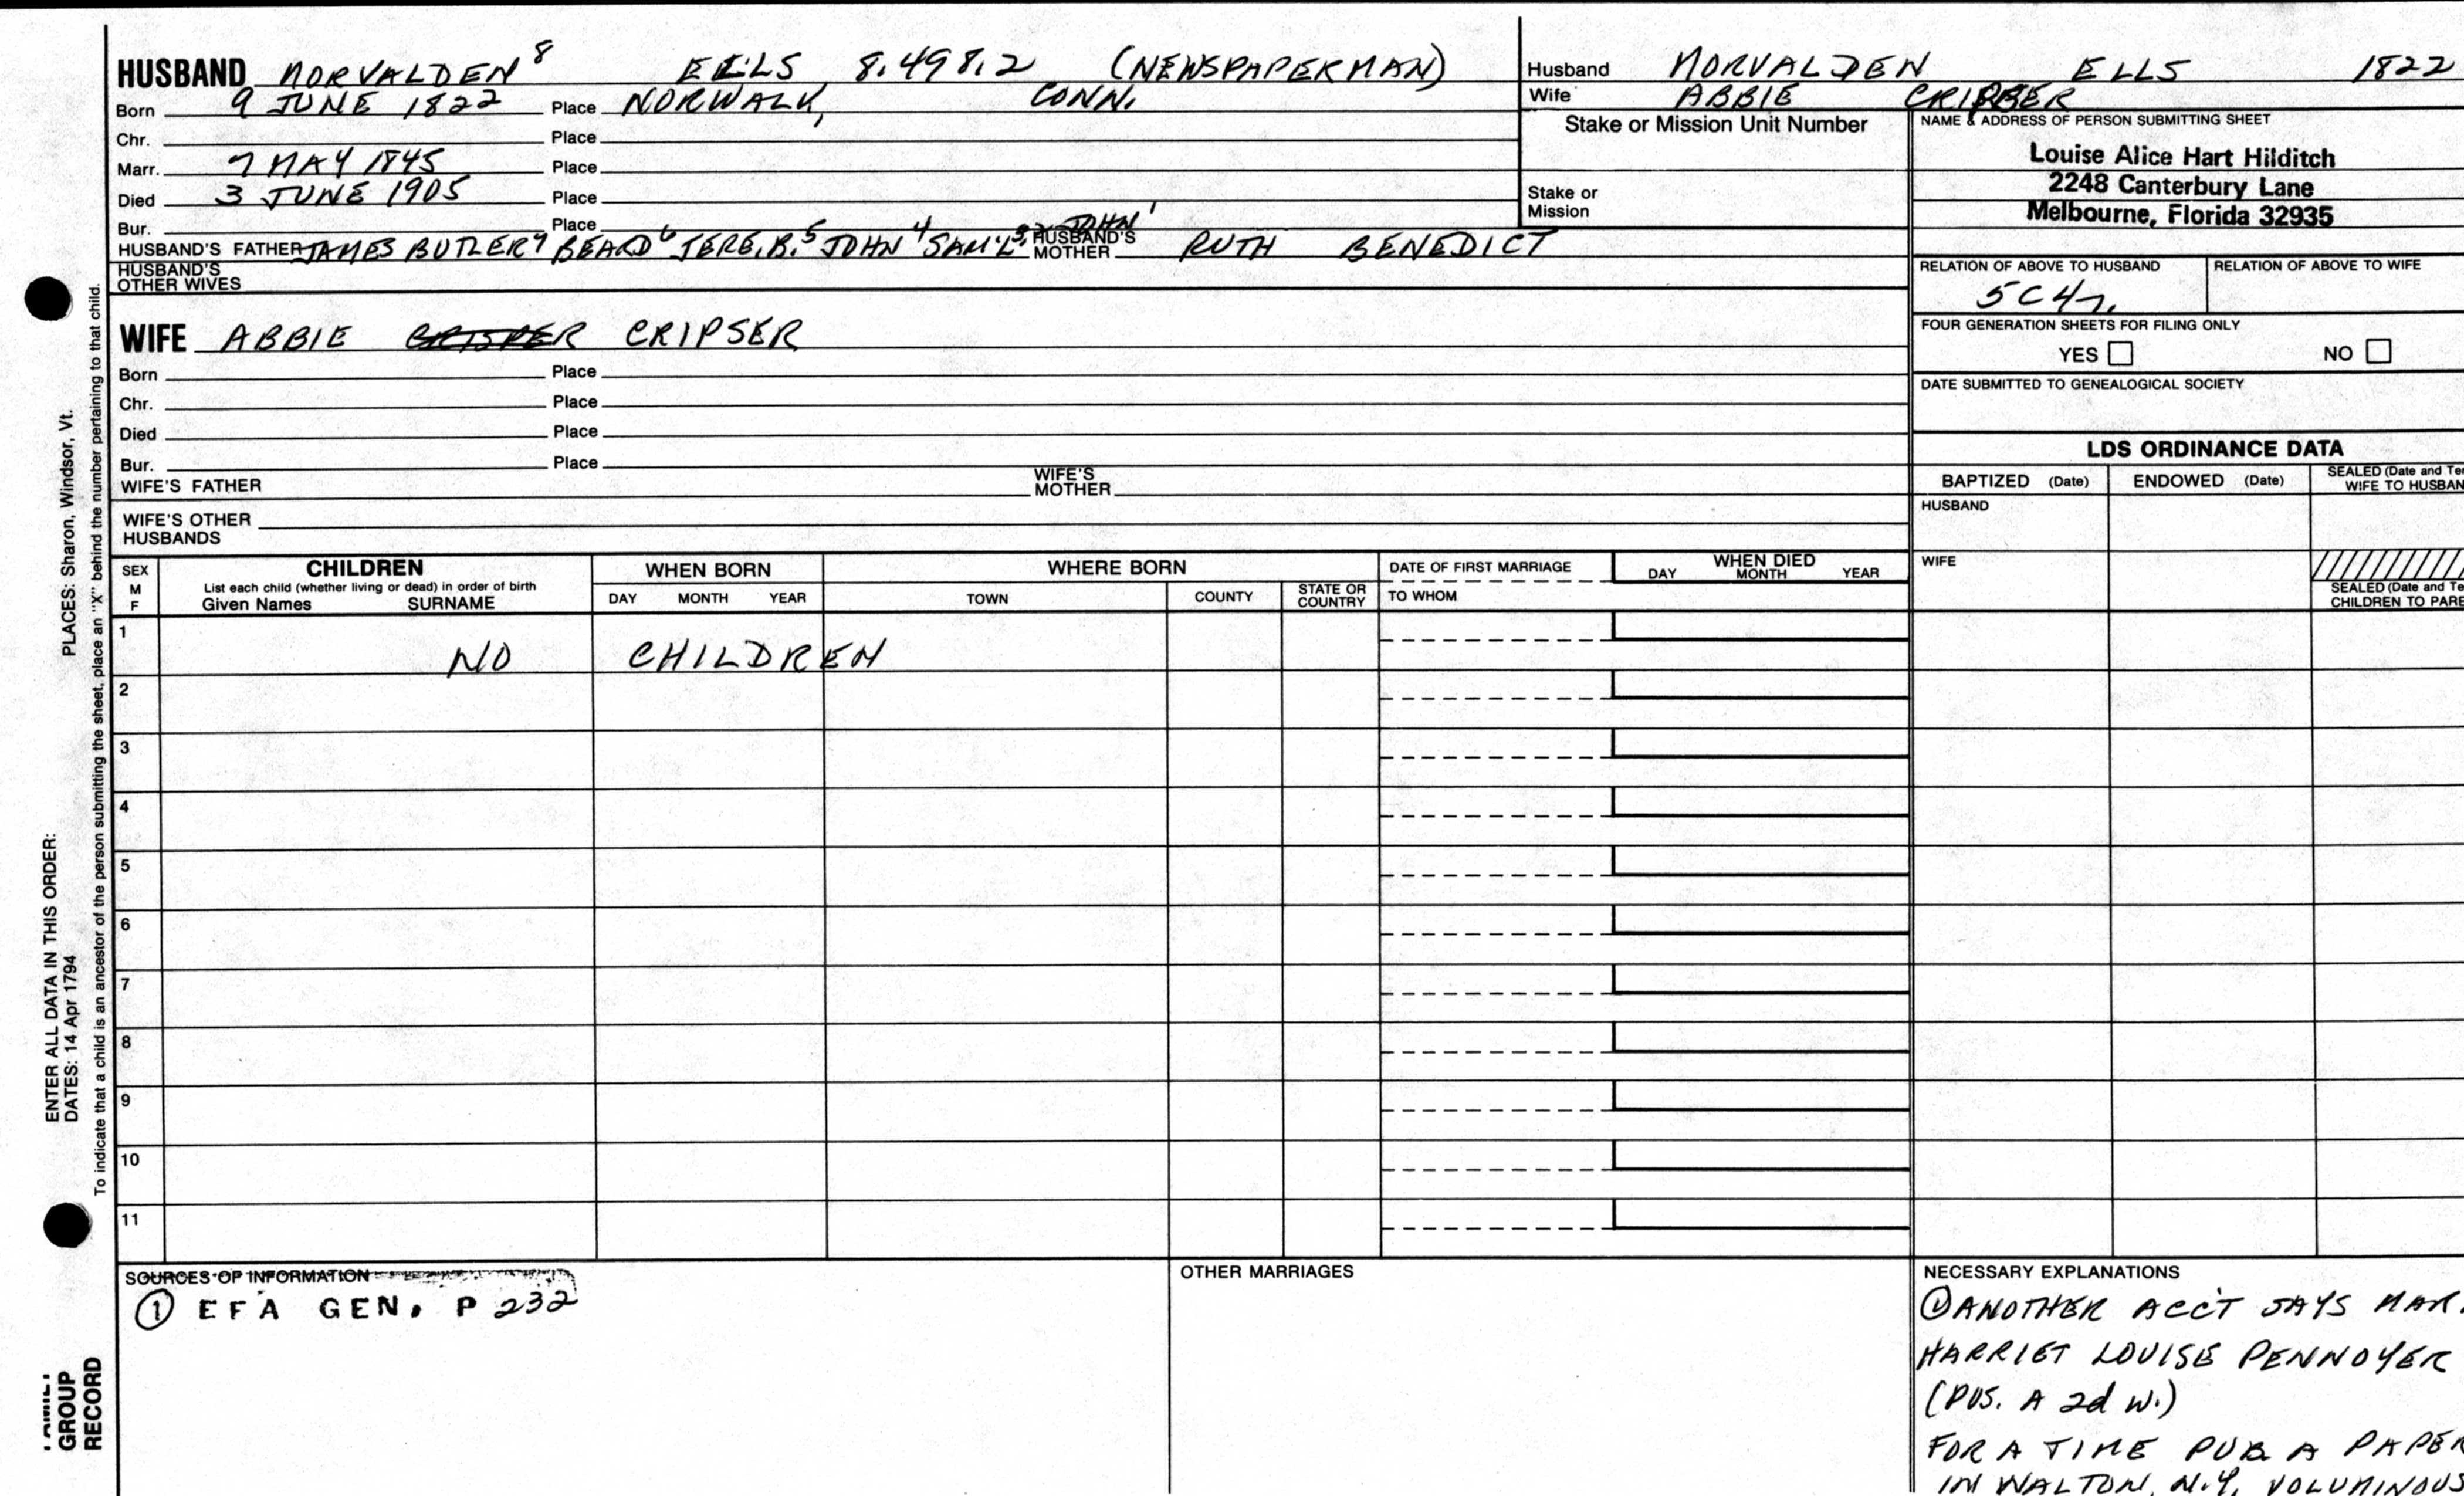 HUSBAND NORVALDEN⁸ EELS 8.498.2 (NEWSPAPERMAN)
Born 9 JUNE 1822 Place NORWALK, CONN.
Chr. Place
Marr. 7 MAY 1845 Place
Died 3 JUNE 1905 Place
Bur. Place
HUSBAND'S FATHER JAMES BUTLER⁷ BEARD⁶ JERE.B.⁵ JOHN⁴ SAM'L³,² JOHN¹ HUSBAND'S MOTHER RUTH BENEDICT
HUSBAND'S OTHER WIVES
Husband NORVALDEN ELLS 1822
Wife ABBIE
Stake or Mission Unit Number
Stake or Mission
NAME & ADDRESS OF PERSON SUBMITTING SHEET
Louise Alice Hart Hilditch
2248 Canterbury Lane
Melbourne, Florida 32935
RELATION OF ABOVE TO HUSBAND RELATION OF ABOVE TO WIFE
FOUR GENERATION SHEETS FOR FILING ONLY
YES NO
DATE SUBMITTED TO GENEALOGICAL SOCIETY
WIFE ABBIE CRIPSER
Born Place
Chr. Place
Died Place
Bur. Place
WIFE'S FATHER WIFE'S MOTHER
WIFE'S OTHER HUSBANDS
LDS ORDINANCE DATA
BAPTIZED (Date) ENDOWED (Date) SEALED (Date and Te
WIFE TO HUSBAN
HUSBAND
WIFE
SEALED (Date and Te
CHILDREN TO PARE
SEX
M
F
CHILDREN
List each child (whether living or dead) in order of birth
Given Names SURNAME
WHEN BORN
DAY MONTH YEAR
WHERE BORN
TOWN COUNTY STATE OR COUNTRY
DATE OF FIRST MARRIAGE
TO WHOM
WHEN DIED
DAY MONTH YEAR
1 NO CHILDREN
2
3
4
5
6
7
8
9
10
11
SOURCES OF INFORMATION
① EFA GEN. P 232
OTHER MARRIAGES
NECESSARY EXPLANATIONS
① ANOTHER ACC'T SAYS MAR.
HARRIET LOUISE PENNOYER
(POS. A 2d W.)
FOR A TIME PUB A PAPER
IN WALTON, N.Y. VOLUMINOUS
ENTER ALL DATA IN THIS ORDER:
DATES: 14 Apr 1794 PLACES: Sharon, Windsor, Vt.
To indicate that a child is an ancestor of the person submitting the sheet, place an "X" behind the number pertaining to that child.
FAMILY
GROUP
RECORD